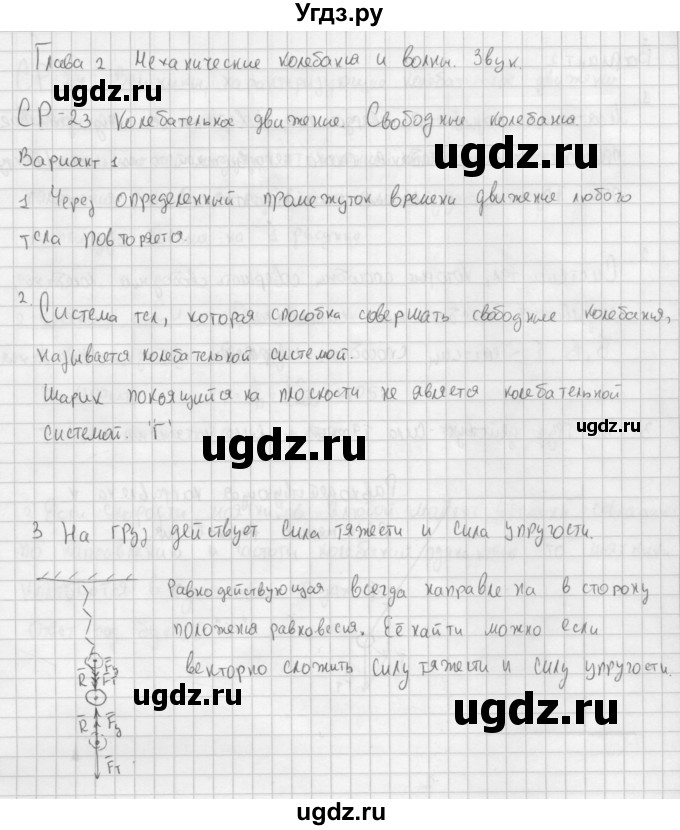 Угдз.ру
Глава 2 Механические колебания и волны. Звук.
ugdz.ru
СР-23 Колебательное движение. Свободные колебания
ugdz.ru
Вариант 1
1 Через определенный промежуток времени движение любого
тела повторяется.
2. Система тел, которая способна совершать свободные колебания,
называется колебательной системой.
Шарик покоящийся на плоскости не является колебательной
системой. "Г"
ugdz.ru
ugdz.ru
3 На груз действует сила тяжести и сила упругости.
Равнодействующая всегда направлена в сторону
положения равновесия. Её найти можно если
векторно сложить силу тяжести и силу упругости.
R Fу
Fт
ugdz.ru
ugdz.ru
R Fу
Fт
ugdz.ru